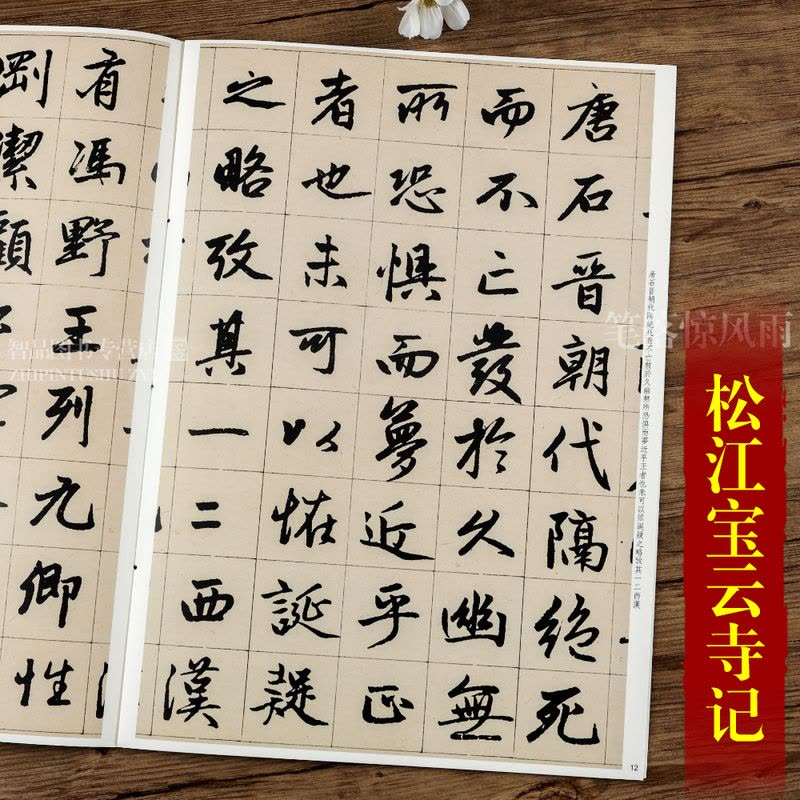 唐石晉朝代隔絕死
而不亡發於久幽無
所恐惧而夢近乎正
者也未可以恠誕疑
之略攷其一二西漢
有馮野王列九卿性
剛潔
唐石晉朝代隔絕死而不亡發於久幽無所恐惧而夢近乎正者也未可以恠誕疑之略攷其一二西漢
12
松江宝云寺记
笔落惊风雨
智品图书专营店
ZHIPINTUSHU ZN